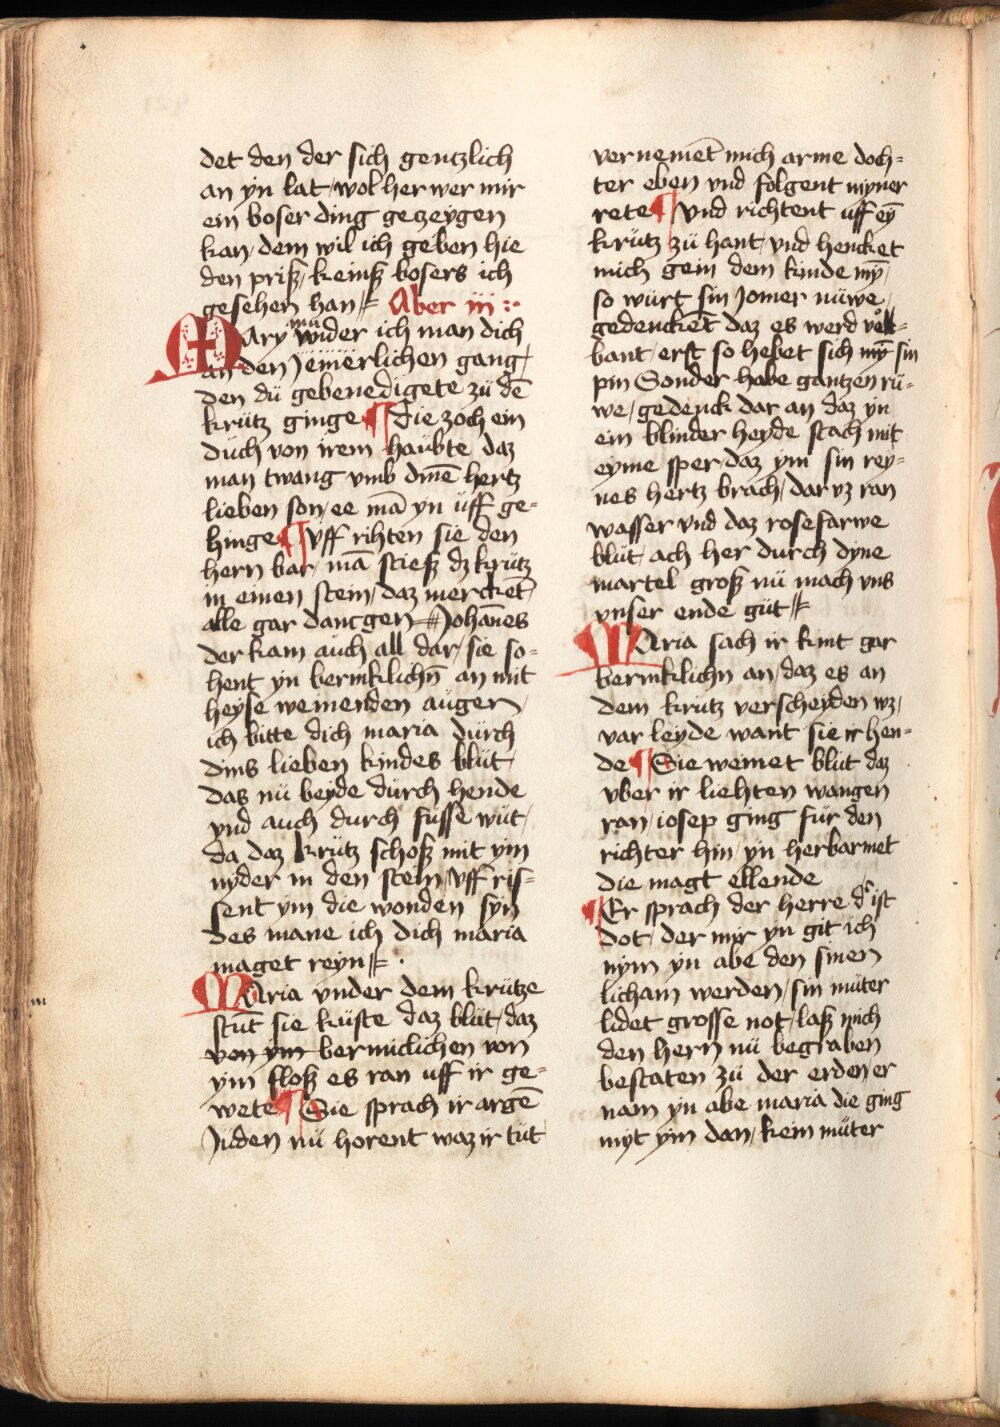 det den der sich gentzlich
an yn lat / wol her wer mir
ein boser ding gezeygen
kan / dem wil ich geben hie
den priß / keinß bosers ich
gesehen han Aber iii
Mary mu wider ich man dich
an den Jemerlichen gang /
den dü gebenedigete zü dē
krütz ginge ¶ die zoch ein
düch von irem haübte daz
man twang vmb dinē hertz
lieben son / ee mā yn üff ge=
hinge ¶ vff rihten sie den
hern bar / mā stieß dz krütz
in einen stein / daz mercket
alle gar dantgen Johānes
der kam aüch all dar / sie so=
hent yn bermklichn̄ an mit
heyse weinenden aügen /
ich bitte dich maria dürch
dins lieben kindes blüt /
das nü beyde dürch hende
vnd auch durch füsse wüt /
da daz krütz schoß mit ym
nyder in den stein / vff ris=
sent ym die wonden syn
des mane ich dich maria
maget reyn
Maria vnder dem krütze
stūt sie küste daz blüt / daz
von ym bermiclichen von
ym floß es ran uff ir ge=
wete ¶ Sie sprach ir argē
Jüden nü horent waz ir tüt
m
vernemēt mich arme doch=
ter eben vnd folgent myner
rete ¶ vnd richtent üff eȳ
krütz zü hant / vnd hencket
mich gein dem kinde mȳ /
so würt sin Jomer nüwe /
gedenckēt daz es werd
bant / erst so hebet sich mȳ sin
pin Sonder habe gantzen rü=
we / gedenck dar an daz yn
ein blinder heyde stach mit
eyme sper / daz ym sin rey=
nes hertz brach / dar vz ran
wasser vnd daz rosefarwe
blüt / ach her dürch dyne
martel groß nü mach vns
vnser ende güt
Maria sach ir kint gar
bermklichn an / daz es an
dem krütz verscheyden wz /
var leyde want sie ir hen=
de ¶ Sie weinet blüt daz
vber ir liehten wangen
ran / iosep ging für den
richter hin / yn herbarmet
die magt ellende
¶ Er sprach der herre d' ist
dot / der mir yn git ich
nym yn abe den sinen
licham werden / sin müter
lidet grosse not / laß mich
den hern nü begraben
bestaten zü der erden er
nam yn abe maria die ging
myt ym dan / kein müter